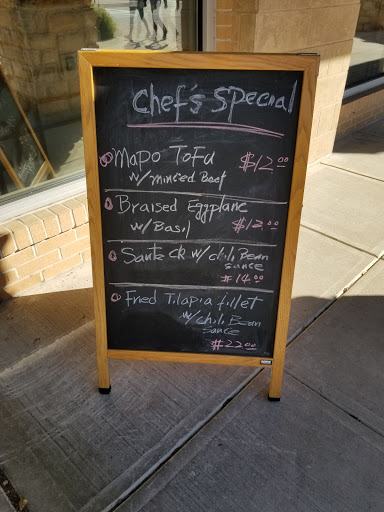 Chef's Special
Mapo Tofu $12.00
w/ minced Beef
Braised Eggplane
w/ Basil $12.00
Saute ck w/ chili Bean
sauce
$14.00
Fried Tilapia fillet
w/ chili Bean
sauce
$22.00